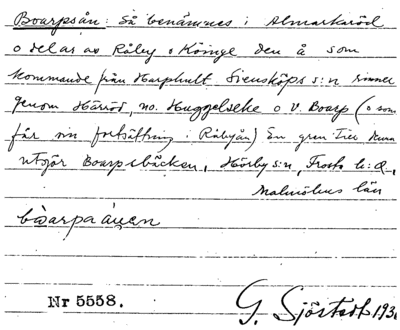 Boarpsån: Så benämnes i Almarksröd
o delar av Råby o Könge den å som
kommande från Harphult Svensköps s:n rinner
genom Härröd, no. Huggelseke o V. Boarp (o som
får sin fortsättning i Råbyån) En gren till
utgör Boarpsbäcken, Hörby s:n, Frosta h:d,
Malmöhus län
bòarpa áuen
Nr 5558.
G. Sjöstedt 193